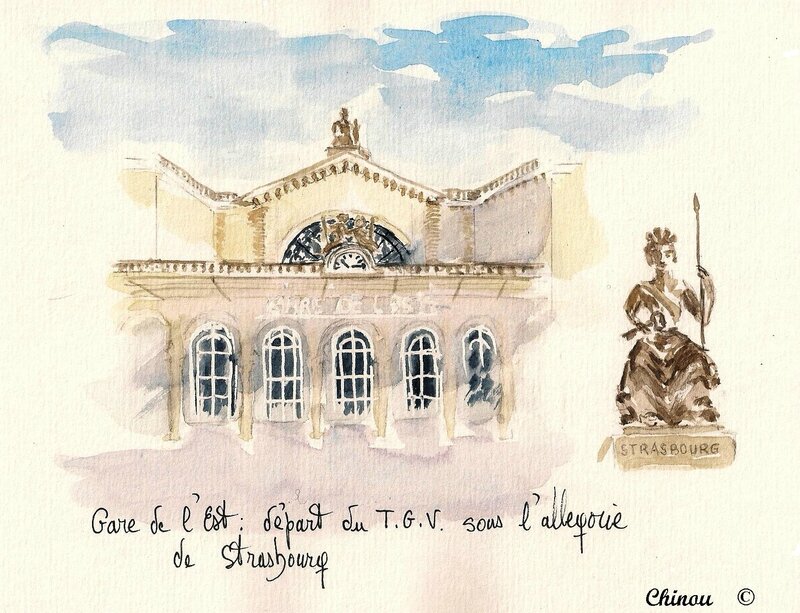 GARE DE L'EST
STRASBOURG
Gare de l'Est : départ du T.G.V. sous l'allegorie
de Strasbourg
Chinou ©